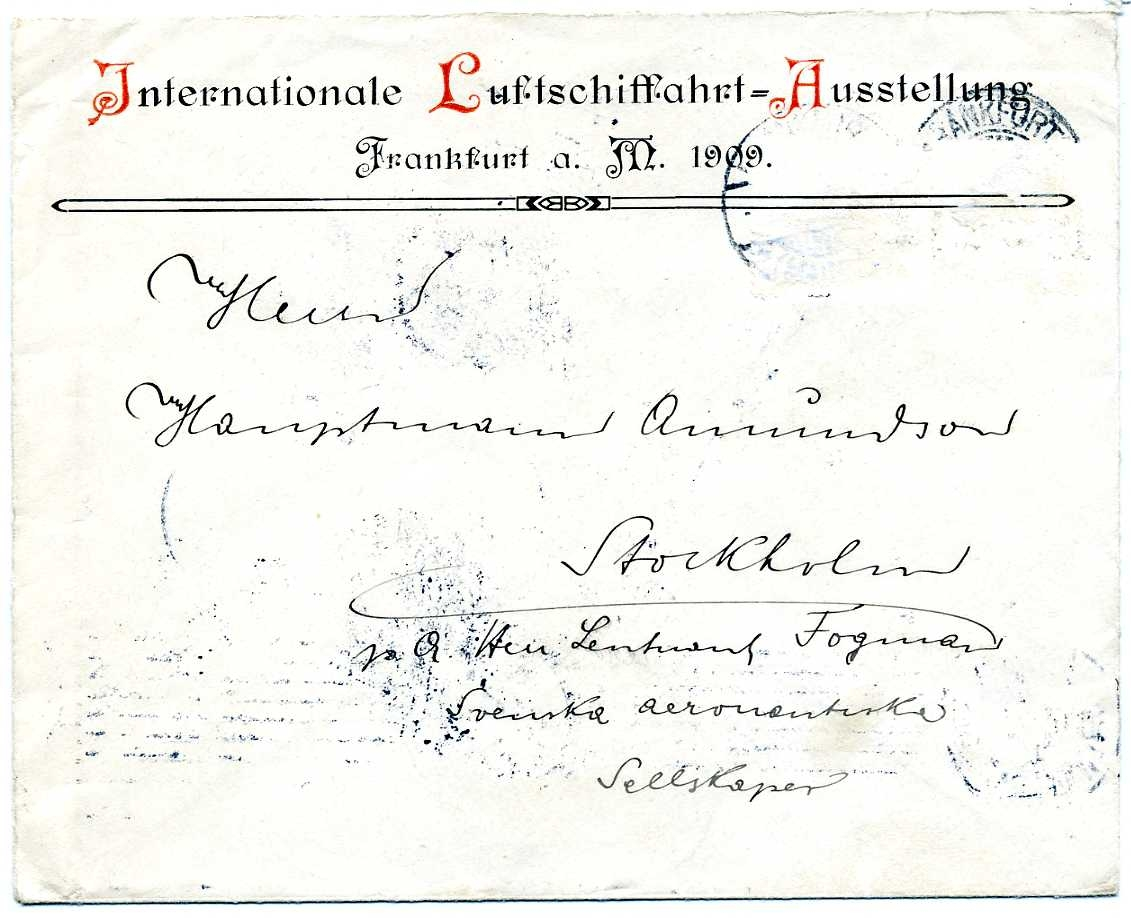 Internationale Luftschiffahrt-Ausstellung
Frankfurt a. M. 1909.
FRANKFURT
Herrn
Hauptmann Amundson
Stockholm
p. A. Herr Leutnant Fogman
Svenska aeronautiska
Sellskapet